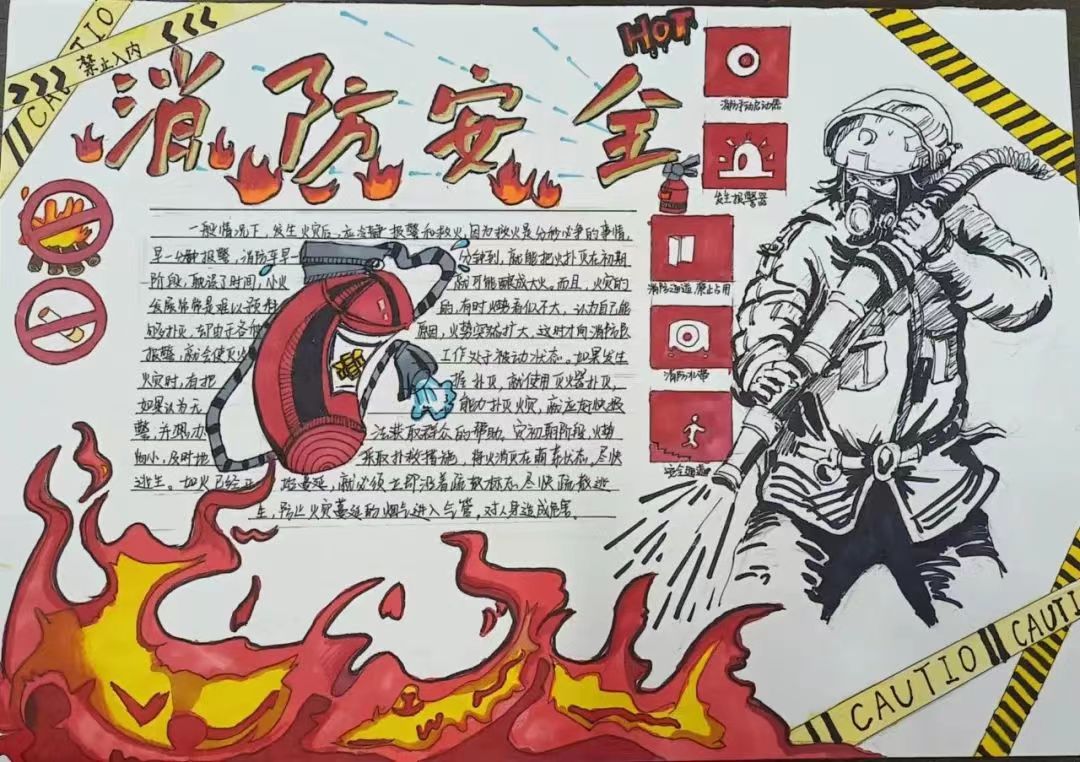 CAUTIO
禁止入内
CAU
消防安全
HOT
消防手动启动器
发生报警器
消防通道 禁止占用
消防水带
安全通道
一般情况下，发生火灾后，应当 报警和救火，因为救火是分秒必争的事情，
早一分钟报警，消防车早一 分钟到，就能把火扑灭在初期
阶段，耽误了时间，小火 就可能酿成大火。而且，火灾的
发展常常是难以预料 的，有时火势看似不大，认为自己能
够扑灭，却由于各种 原因，火势突然扩大，这时才向消防队
报警，就会使灭火 工作处于被动状态。如果发生
火灾时，有把 握扑灭，就使用灭火器扑灭，
如果认为无 能力扑灭火灾，就应尽快报
警，并想办 法获取群众的帮助。灾初期阶段，火势
, 及时地 采取扑救措施，将火消灭在萌芽状态，尽快
逃生。如火已经 蔓延，就必须立即沿着疏散标志，尽快疏散逃
生，防止火灾蔓延的烟气进入气管，对人身造成危害。
CAUTIO
CAUTI